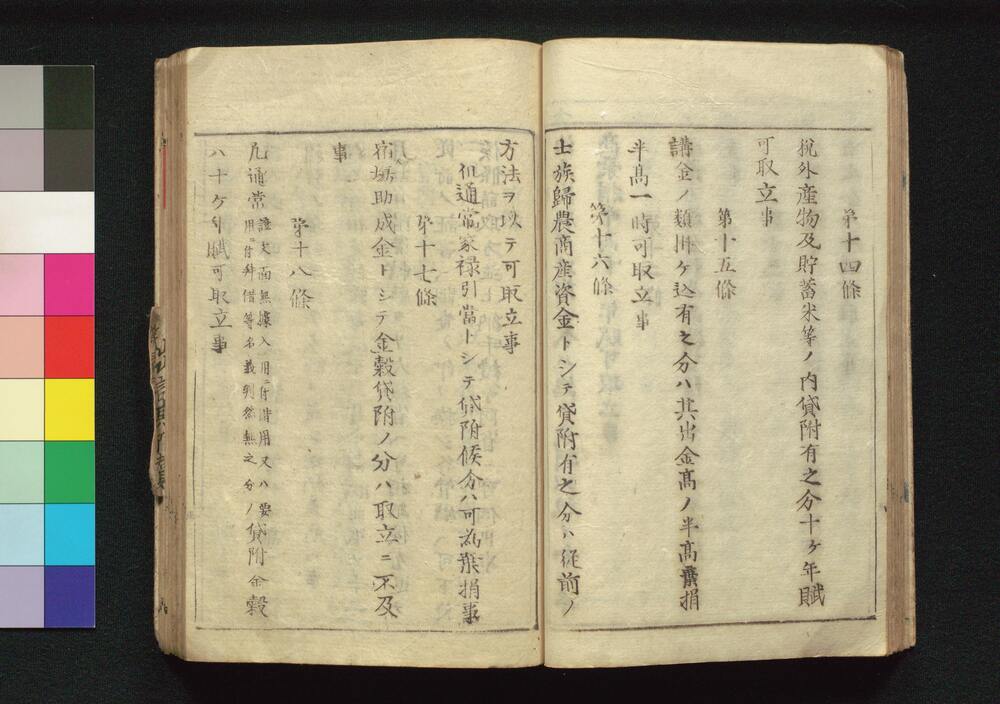 第十四條
税外産物及貯蓄米等ノ内貸附有之分十ケ年賦
可取立事
第十五條
講金ノ類掛ケ込有之分ハ其出金高ノ半高棄捐
半高一時可取立事
第十六條
士族歸農商産資金トシテ貸附有之分ハ従前ノ
方法ヲ以テ可取立事
但通常家禄引當トシテ貸附候分ハ可為棄捐事
第十七條
宿場助成金トシテ金穀貸附ノ分ハ取立ニ不及
事
第十八條
凡通常證文面無據入用ニ付借用又ハ要
用ニ付拝借等名義判然無之分ノ貸附金穀
八十ケ年賦可取立事